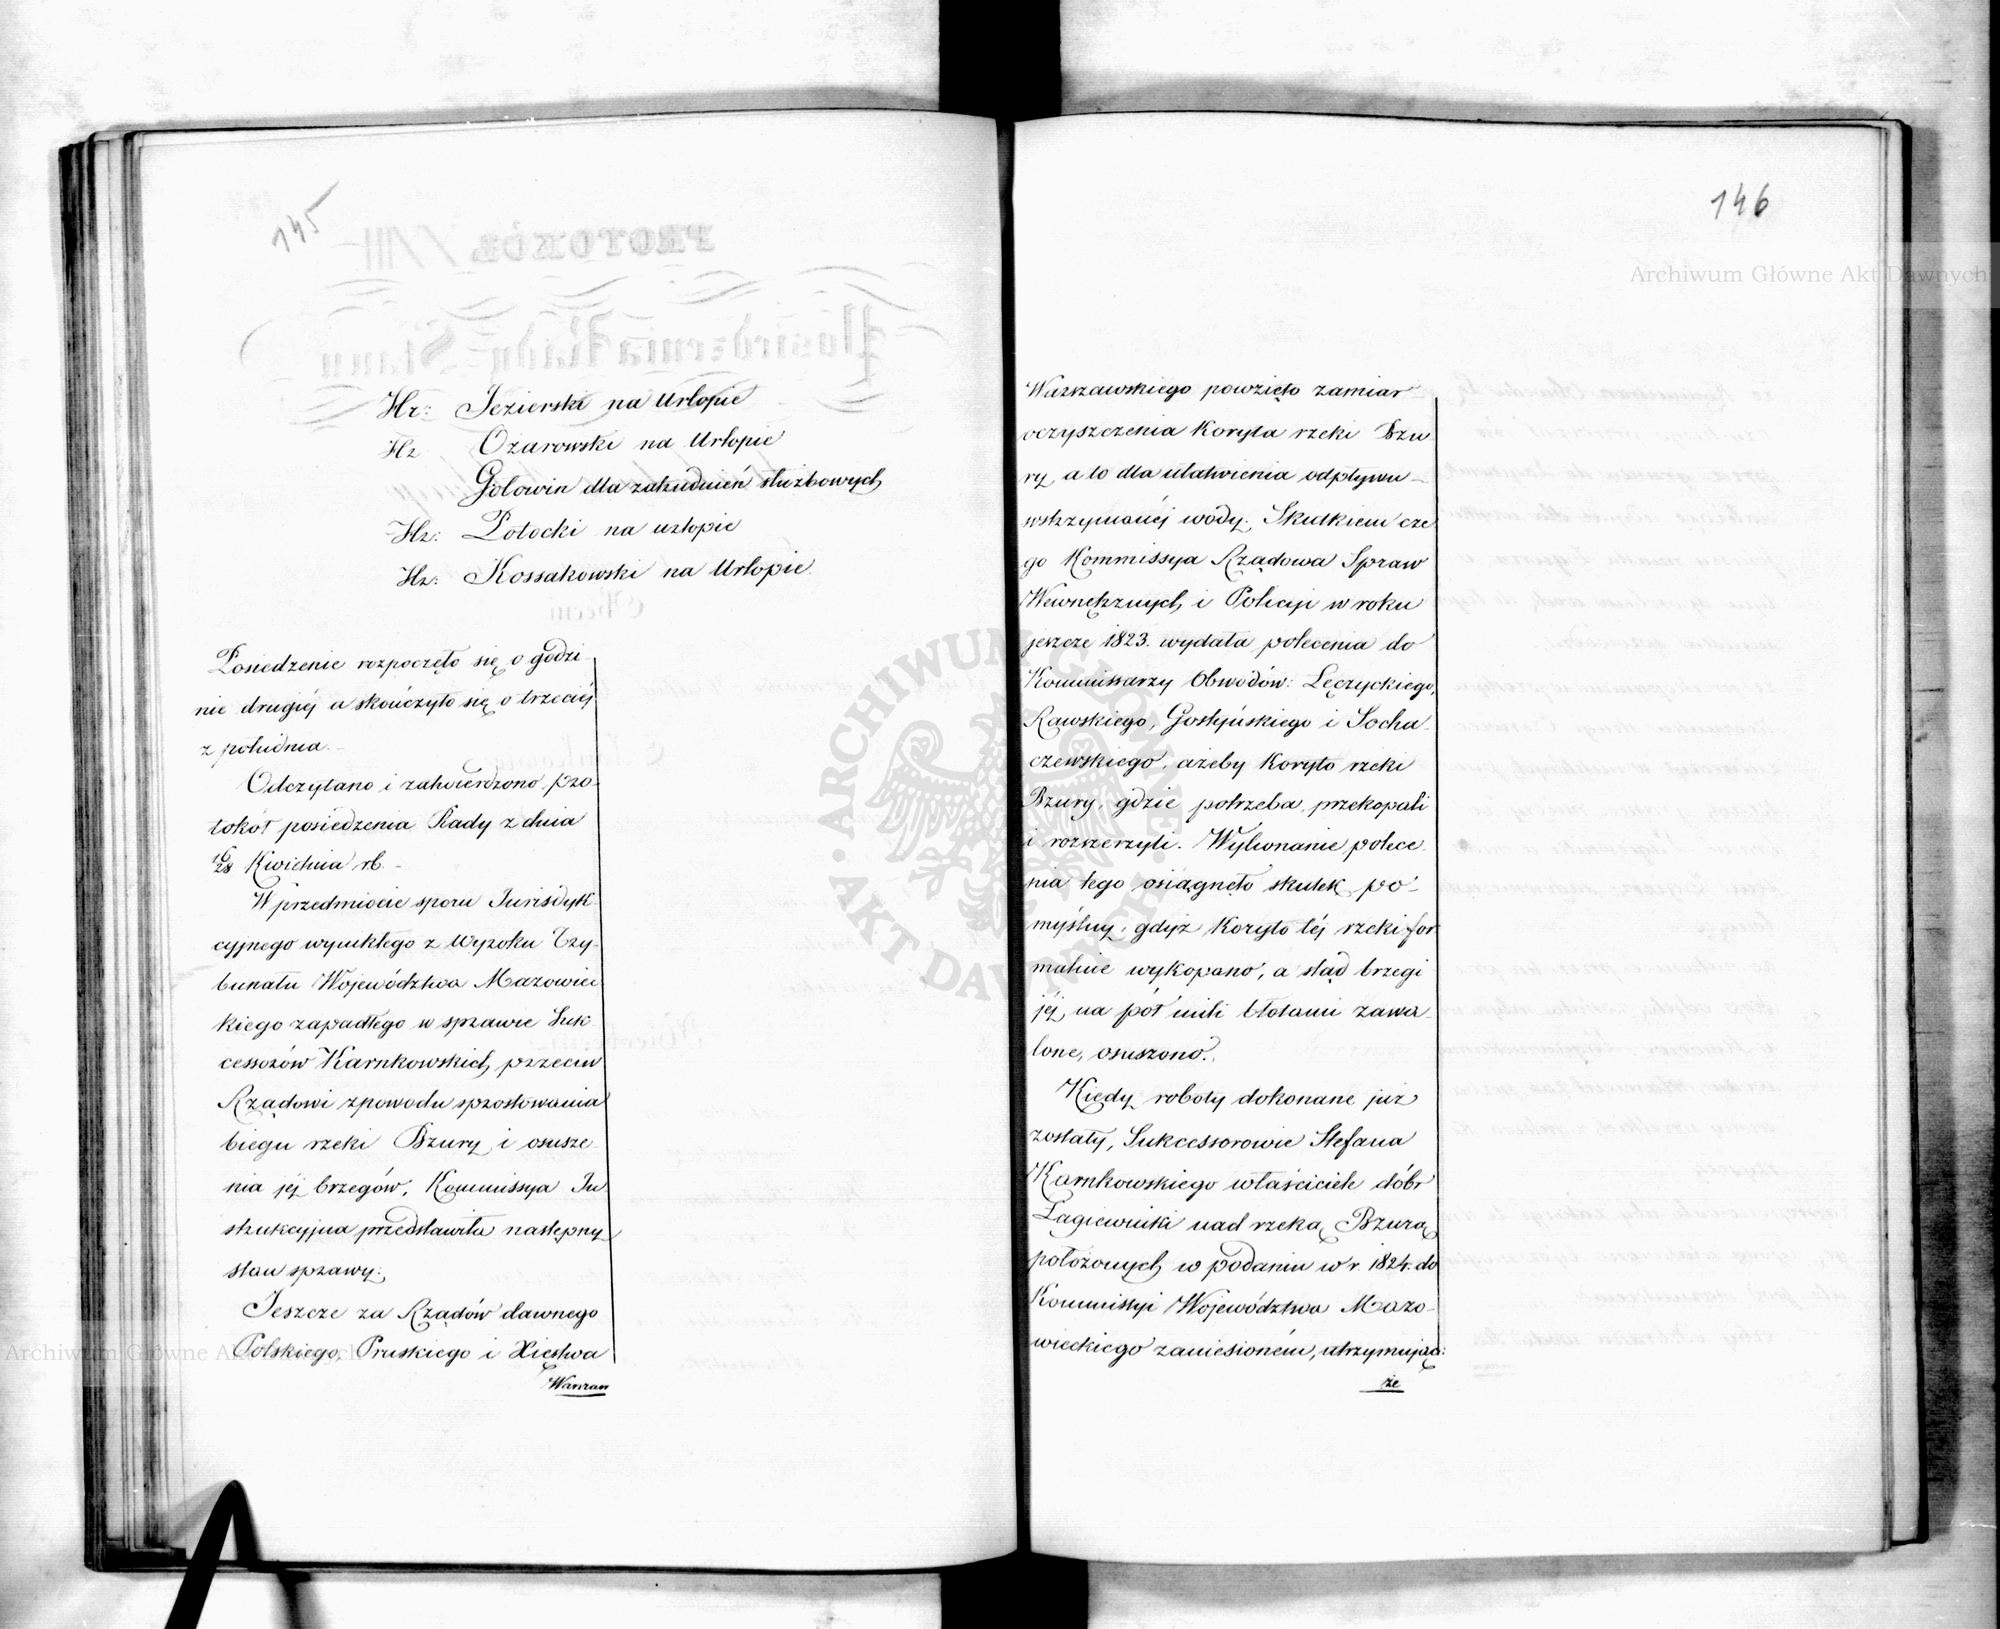 145
Hr: Jezierski na Urlopie
Hr Ożarowski na Urlopie
Gołowin dla zatrudnień służbowych
Hr: Potocki na urlopie
Hr: Kossakowski na Urlopie.
Posiedzenie rozpoczęło się o godzi
nie drugiéj a skończyło się o trzeciéj
z południa.
Odczytano i zatwierdzono pro-
tokół posiedzenia Rady z dnia
16/28 Kwietnia r.b.
W przedmiocie sporu Jurisdyk
cyjnego wynikłego z Wyroku Try-
bunału Województwa Mazowiec
kiego zapadłego w sprawie Suk
cessorów Karnkowskich przeciw
Rządowi z powodu sprostowania
biegu rzeki Bzury i osusze
nia jéj brzegów, Kommissya In
strukcyjna przedstawiła następny
stan sprawy:
Jeszcze za Rządów dawnego
Polskiego, Pruskiego i Xięstwa
Warszaw
146
Warszawskiego powzięto zamiar
oczyszczenia Koryta rzeki Bzu
ry, a to dla ułatwienia odpływu
wstrzymanéj wody. Skutkiem cze
go Kommissya Rządowa Spraw
Wewnętrznych i Policyi w roku
jeszcze 1823. wydała polecenia do
Kommissarzy Obwodów: Łęczyckiego,
Rawskiego, Gostyńskiego i Socha
czewskiego, ażeby Koryto rzeki
Bzury, gdzie potrzeba, przekopali
i rozszerzyli. Wykonanie polece
nia tego osiągnęło skutek po-
myślny, gdyż Koryto téj rzeki for
malnie wykopano, a stąd brzegi
jéj na pół mili błotami zawa-
lone, osuszono.
Kiedy roboty dokonane już
zostały, Sukcessorowie Stefana
Karnkowskiego właściciele dóbr
Łagiewniki nad rzeką Bzurą
położonych w podaniu w r. 1824. do
Kommissyi Województwa Mazo-
wieckiego zaniesionem, utrzymując:
że
Archiwum Główne Akt Dawnych
Archiwum Główne Akt Dawnych
ARCHIWUM GŁÓWNE AKT DAWNYCH